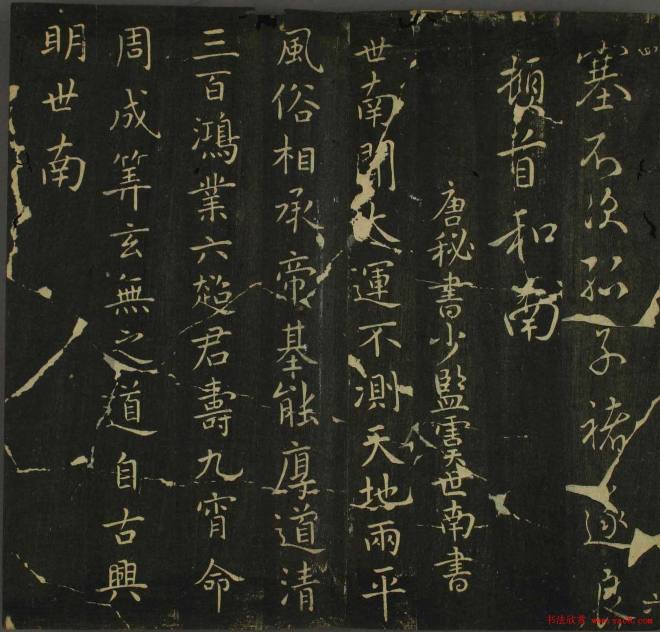 塞不次孤子褚遂良
頓首和南
唐秘書少監虞世南書
世南聞大運不測天地兩平
風俗相承帝基能厚道清
三百鴻業六超君壽九霄命
周成筭玄無之道自古興
明世南
四
六
书法欣赏 www.yac8.com